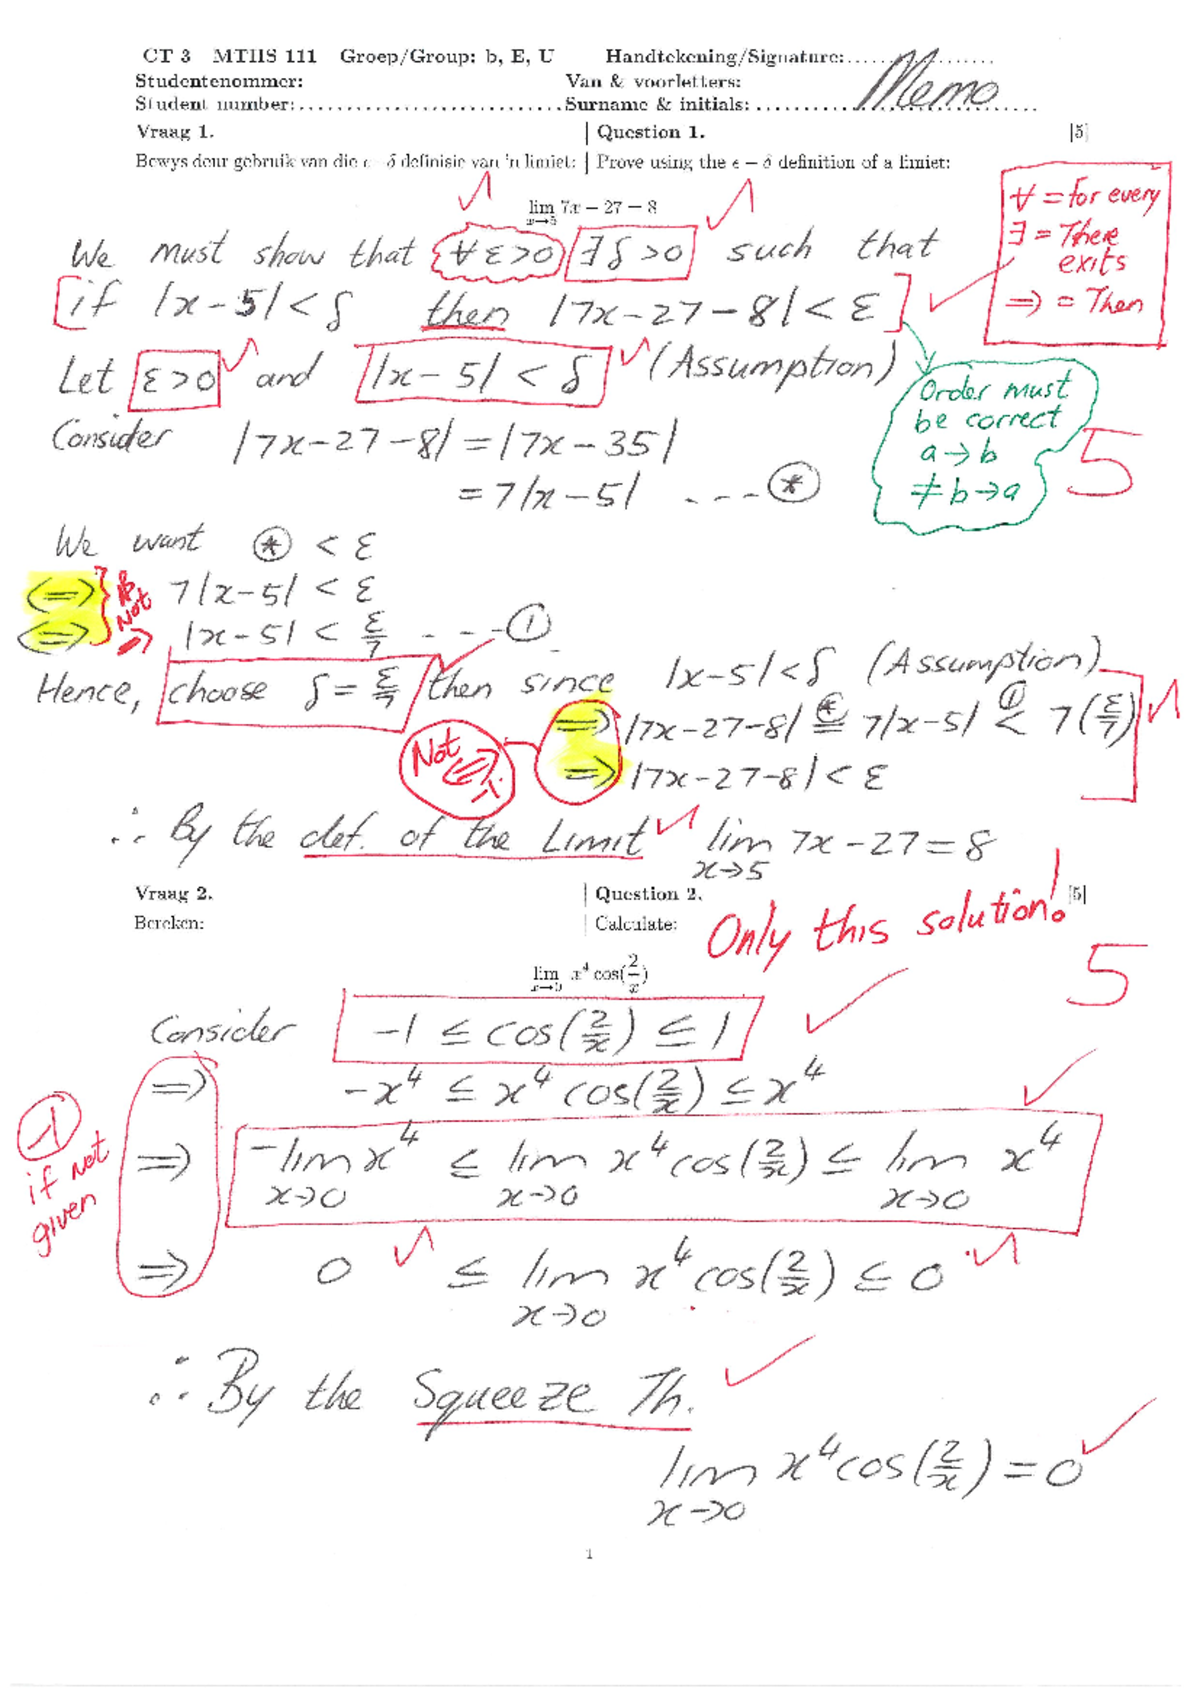 CT 3 MTHS 111 Groep/Group: b, E, U Handtekening/Signature:....................
Studentenommer: Van & voorletters: Memo
Student number:............................Surname & initials:..............................
Vraag 1. | Question 1. [5]
Bewys deur gebruik van die ε−δ definisie van 'n limiet: | Prove using the ϵ − δ definition of a limiet:
lim x→5 7x − 27 − 8
∀ = for every
∃ = There exits
⇒ = Then
We must show that ∀ε>0 ∃δ>0 such that
[if |x−5|<δ then |7x−27−8|<ε]
Let ε>0 and |x−5| < δ (Assumption)
Order must
be correct
a→b
≠ b→a
5
Consider |7x−27−8| = |7x−35|
= 7|x−5| ---⊛
We want ⊛ < ε
⇔ 7|x−5| < ε
Not ⇒
⇔ |x−5| < ε/7 ---①
Hence, choose δ = ε/7 then since |x−5|<δ (Assumption)
⇒ |7x−27−8| ⊛= 7|x−5| ①< 7(ε/7)
Not ⇔ -1
⇒ |7x−27−8| < ε
∴ By the def. of the Limit lim x→5 7x−27=8
Vraag 2. | Question 2. [5]
Bereken: | Calculate:
Only this solution!
lim x→0 x⁴ cos(2/x)
5
Consider −1 ≤ cos(2/x) ≤ 1
⇒ −x⁴ ≤ x⁴ cos(2/x) ≤ x⁴
-1
if not
given
⇒ −lim x→0 x⁴ ≤ lim x→0 x⁴cos(2/x) ≤ lim x→0 x⁴
⇒ 0 ≤ lim x→0 x⁴cos(2/x) ≤ 0
∴ By the Squeeze Th.
lim x→0 x⁴cos(2/x) = 0
1